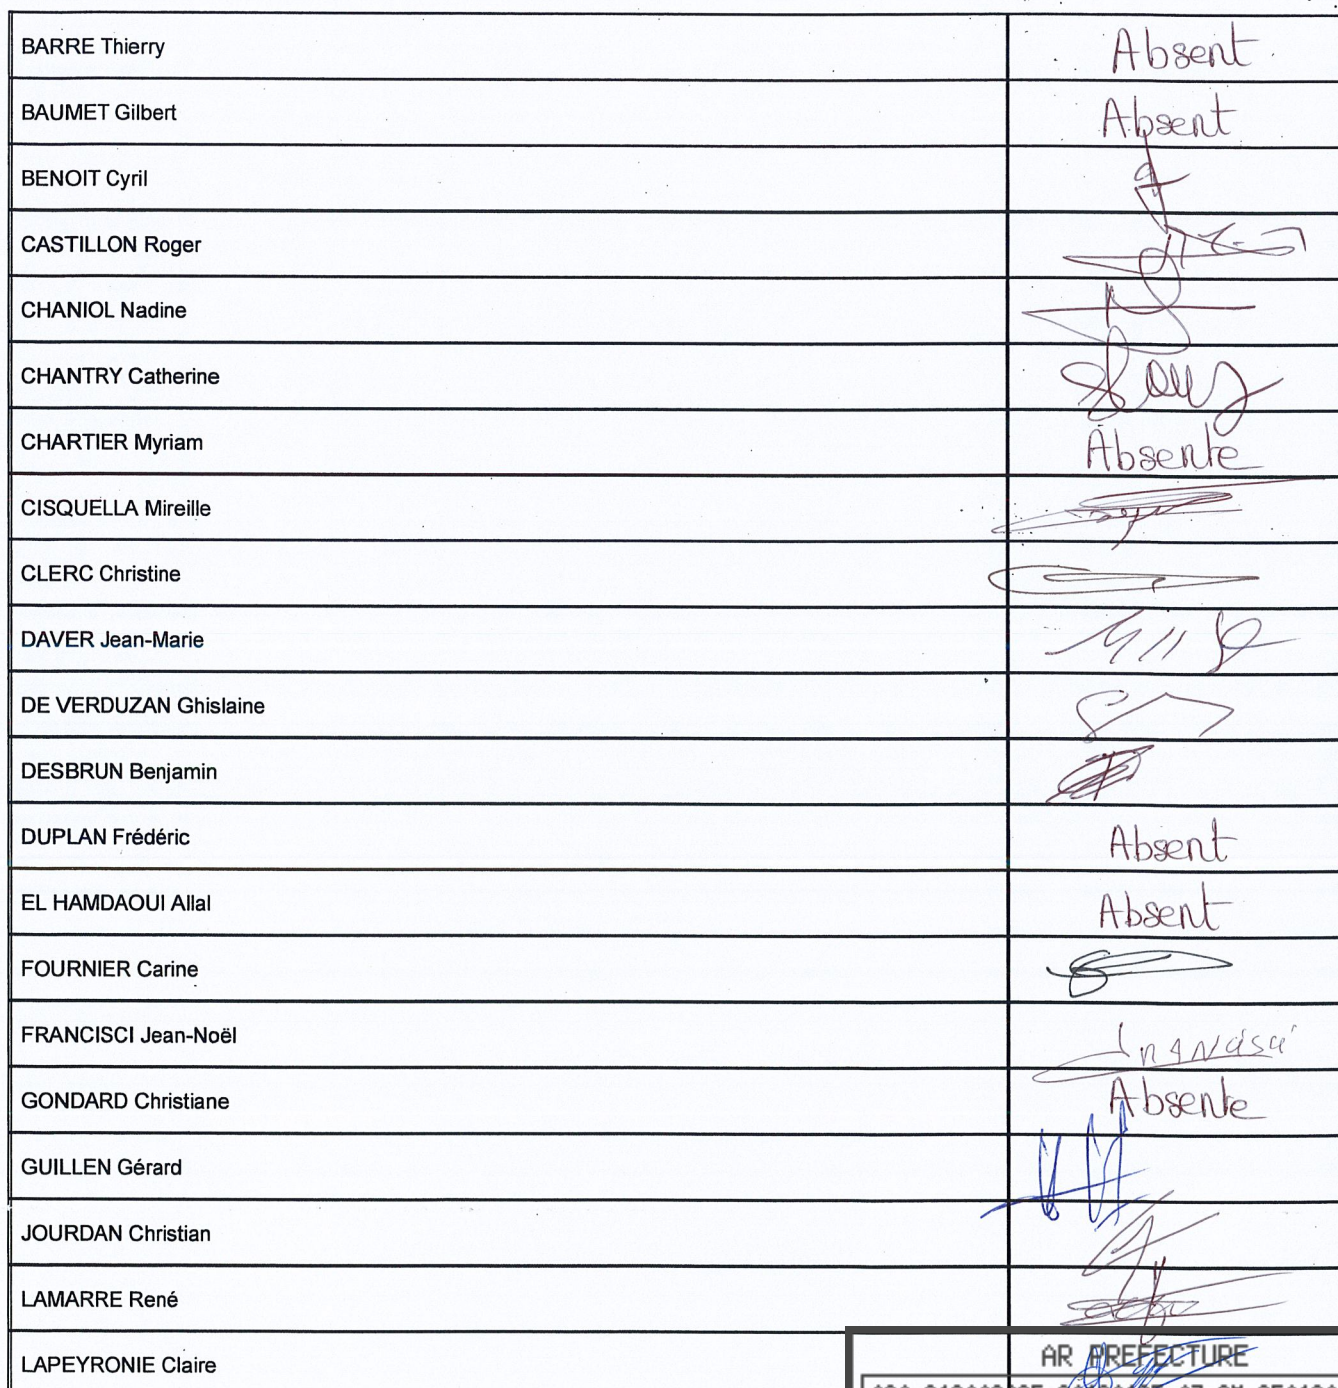 BARRE Thierry Absent
BAUMET Gilbert Absent
BENOIT Cyril
CASTILLON Roger
CHANIOL Nadine
CHANTRY Catherine
CHARTIER Myriam Absente
CISQUELLA Mireille
CLERC Christine
DAVER Jean-Marie
DE VERDUZAN Ghislaine
DESBRUN Benjamin
DUPLAN Frédéric Absent
EL HAMDAOUI Allal Absent
FOURNIER Carine
FRANCISCI Jean-Noël
GONDARD Christiane Absente
GUILLEN Gérard
JOURDAN Christian
LAMARRE René
LAPEYRONIE Claire
AR PREFECTURE